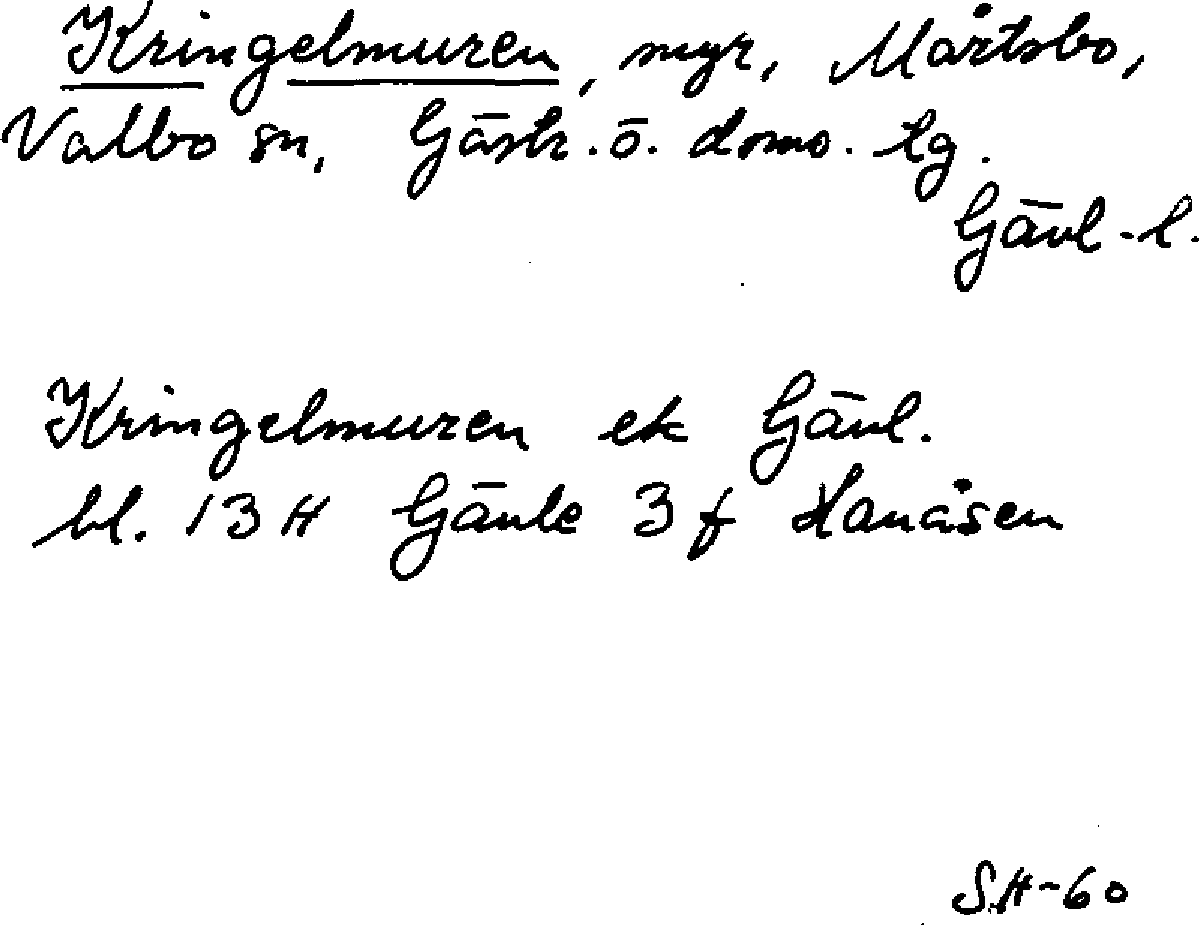 Kringelmuren, myr, Mårtsbo,
Valbo sn, Gästr. ö. doms. tg.
Gävl-l.
Kringelmuren ek Gävl.
bl. 13H Gävle 3f Hanåsen
SH-60